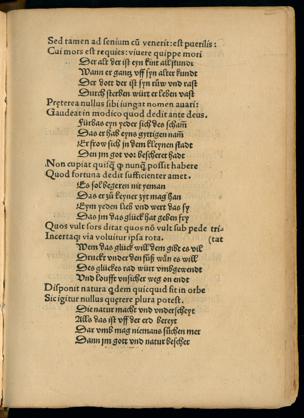 Sed tamen ad senium cū venerit: est puerilis:
Cui mors est requies: viuere quippe mori
Der alt der ist eyn kint allstundt
Wann er gantz vff syn alter kundt
Der dott der ist syn rūw vnd rast
Durch sterben würt er leben vast
Preterea nullus sibi iungat nomen auari:
Gaudeat in modico quod dedit ante deus.
Fürbas eyn yeder sich des scham̄
Das er hab eyns gyttigen nam̄
Er frow sich jn dem kleynen stadt
Den jm got vor bescheret hadt
Non cupiat quicq̄ ꝙ nunꝙ possit habere
Quod fortuna dedit sufficienter amet.
Es sol begeren nit yeman
Das er zů keyner zyt mag han
Eym yeden lieb vnd wert das sy
Das jm das glück hat geben fry
Quos vult sors ditat quos nō vult sub pede tri-
Incertaq; via voluitur ipsa rota. (tat
Wem das glück will dem gibt es vil
Druckt vnder den füß wān es will
Des glückes rad würt vmbgewendt
Vnd loufft vnsicher weg on endt
Disponit natura q̇dem quicquid fit in orbe
Sic igitur nullus querere plura potest.
Die natur mache vnd vnderscheyt
Alls das ist vff der erd bereyt
Dar vmb mag niemans sůchen mer
Dann jm gott vnd natur bescher